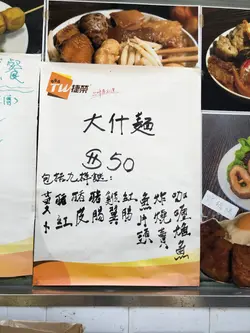 捷榮
TW
大什麵
$50
包括九樣餸:
卜
豬紅
豬皮
豬腸
雞翼
紅腸
魚片頭
炸燒賣
咖喱魷魚
餐